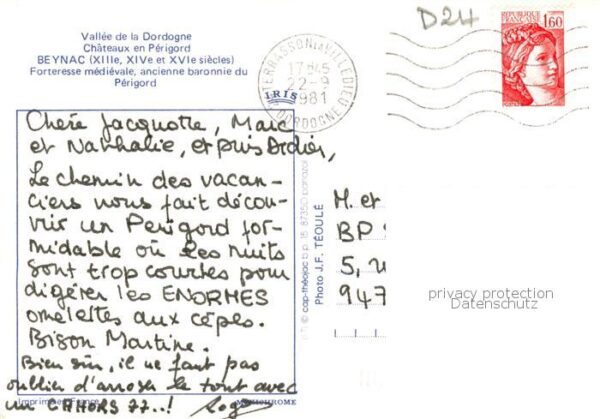 Vallée de la Dordogne
Châteaux en Périgord
BEYNAC (XIIIe, XIVe et XVIe siècles)
Forteresse médiévale, ancienne baronnie du
Périgord
IRIS
D24
REPUBLIQUE
FRANÇAISE
1,60
TERRASSON LA VILLEDIEU
17H45
22-9
1981
DORDOGNE
Chère Jacquotte, Marc
et Nathalie, et puis Didier,
Le chemin des vacan-
ciers nous fait décou-
vrir un Périgord for-
midable où les nuits
sont trop courtes pour
digérer les ENORMES
omelettes aux cèpes.
Bison Martine.
Bien sûr, il ne faut pas
oublier d'arroser le tout avec
un CAHORS 77..!
Imprimé en France
cap-théojac b.p. 15 87350 panazol
Photo J.F. TÉOULÉ
M. et
BP
5,
947
privacy protection
Datenschutz